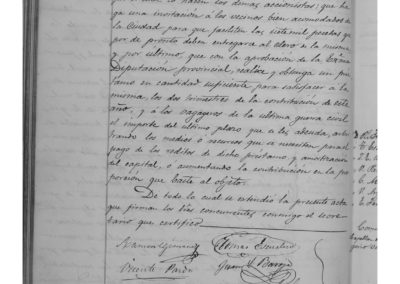 que lo hacen los demas accionistas; que ha
ga una invitación á los vecinos bien acomodados de
la Ciudad para que faciliten las siete mil pesetas que
por de pronto deben entregarse al clero de la misma
y por ultimo, que con la aprobacion de la Exma
Diputacion provincial, realice y obtenga un pres
tamo en cantidad suficiente para satisfacer a la
misma, los dos trimestres de la contribucion de este
año, y á los bagageros de la ultima guerra civil
el importe del ultimo plazo que se les adeuda, arbi
trando los medios ó recursos que se necesiten para el
pago de los reditos de dicho prestamo y amortizacion
del capital, ó aumentando la contribucion en la pro
porción que baste al objeto.
De todo lo cual se estendió la presente acta
que firman los Sres concurrentes, conmigo el secre
tario que certifico
Ramon Gimenez
Tomas
Vicente Pardo
Juan Baroja